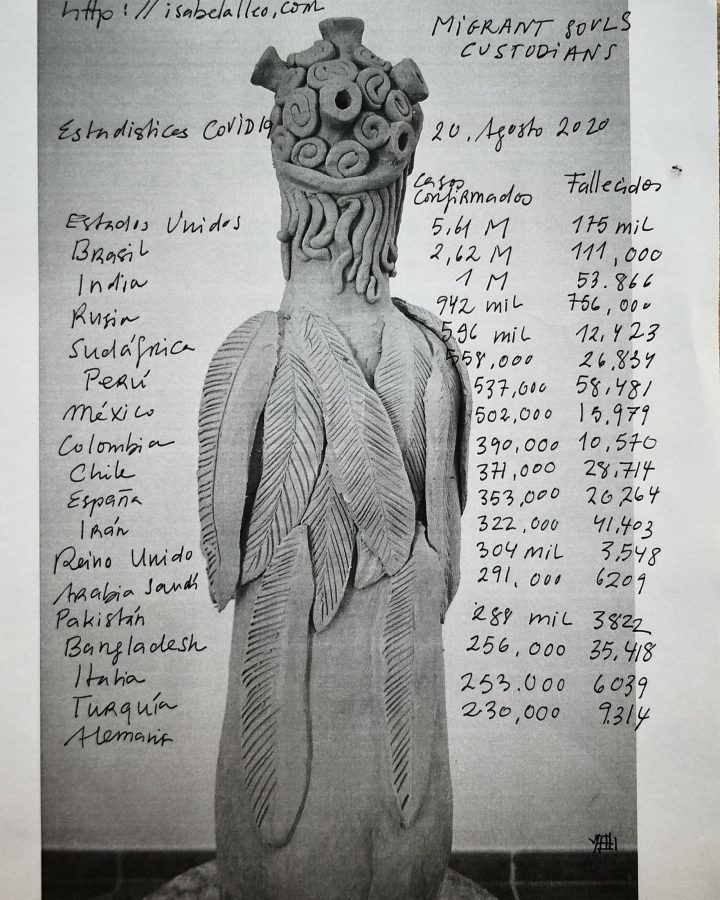 http://isabelalleo.com
MIGRANT SOULS
CUSTODIANS
Estadisticas COVID19 20, Agosto 2020
Casos Confirmados Fallecidos
Estados Unidos 5,61 M 175 mil
Brasil 2,62 M 111,000
India 1 M 53.866
Rusia 942 mil 756,000
Sudáfrica 596 mil 12,423
Perú 558,000 26,834
México 537,000 58,481
Colombia 502,000 15,979
Chile 390,000 10,570
España 371,000 28,714
Irán 353,000 20,264
Reino Unido 322,000 41,403
Arabia Saudí 304 mil 3,548
Pakistán 291,000 6209
Bangladesh 289 mil 3822
Italia 256,000 35,418
Turquía 253.000 6039
Alemania 230,000 9.314